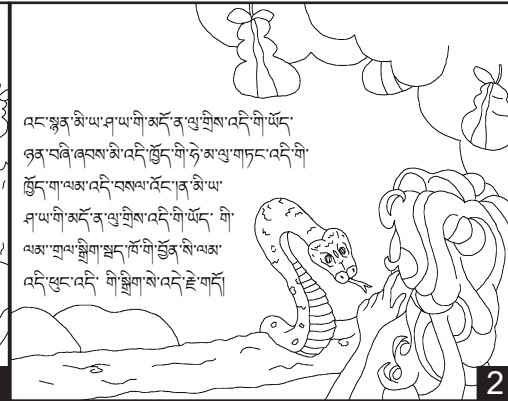 འང་སྙན་མི་ཡ་ཤ་ཡ་གི་མདོ་ན་ལུ་གྲིས་འདི་གི་ཡོད་
ཉན་བཞི་ཞབས་མི་འདི་ཁྱོད་གི་ཧེ་མ་ལུ་གཏང་འདི་གི་
ཁྱོད་ག་ལམ་འདི་བསལ་འོང་།ན་མི་ཡ་
ཤ་ཡ་གི་མདོ་ན་ལུ་གྲིས་འདི་གི་ཡོད་ གི་
ལམ་གྲལ་སྒྲིག་སྦད་ཁོ་གི་བྱོན་སི་ལམ་
འདི་ཕུང་འདི་ གི་སྒྲིག་སེ་འདེ་རྗེ་གདོ།
2